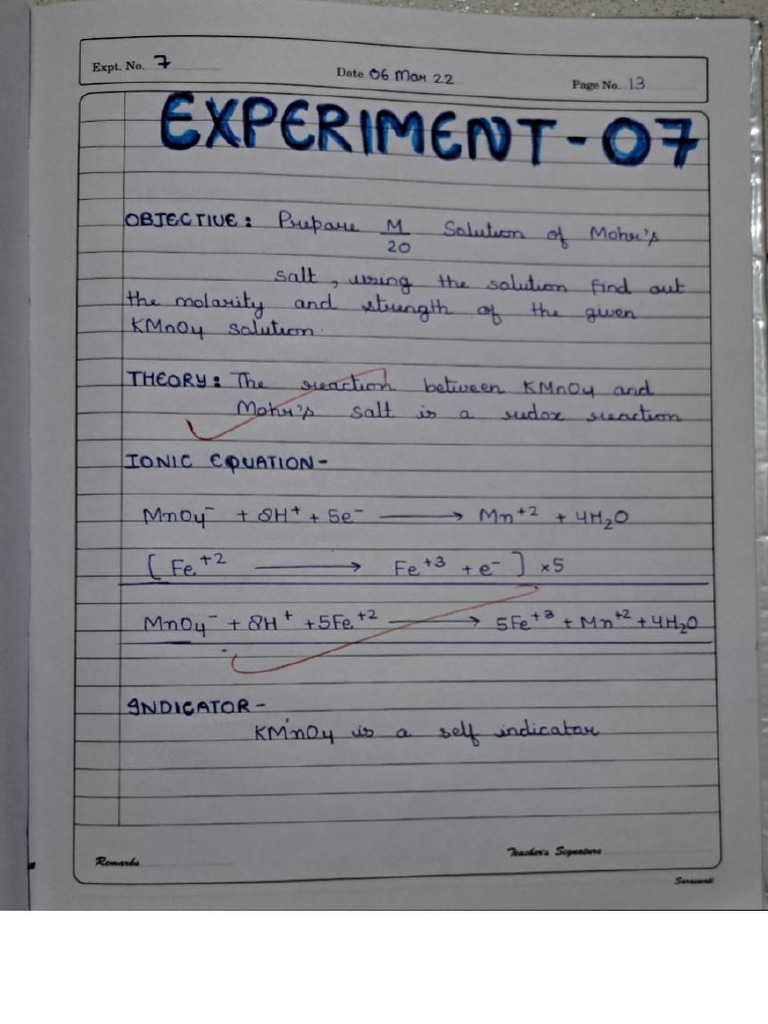 Expt. No. 7
Date 06 Mar 22
Page No. 13
EXPERIMENT-07
OBJECTIVE: Prepare M/20 Solution of Mohr's
salt, using the solution find out
the molarity and strength of the given
KMnO4 solution.
THEORY: The reaction between KMnO4 and
Mohr's salt is a redox reaction
IONIC EQUATION-
MnO4⁻ + 8H⁺ + 5e⁻ ⟶ Mn⁺² + 4H₂O
[Fe⁺² ⟶ Fe⁺³ + e⁻] ×5
MnO4⁻ + 8H⁺ + 5Fe⁺² ⟶ 5Fe⁺³ + Mn⁺² + 4H₂O
INDICATOR-
KMnO4 is a self indicator
Teacher's Signature
Remarks
Saraswati